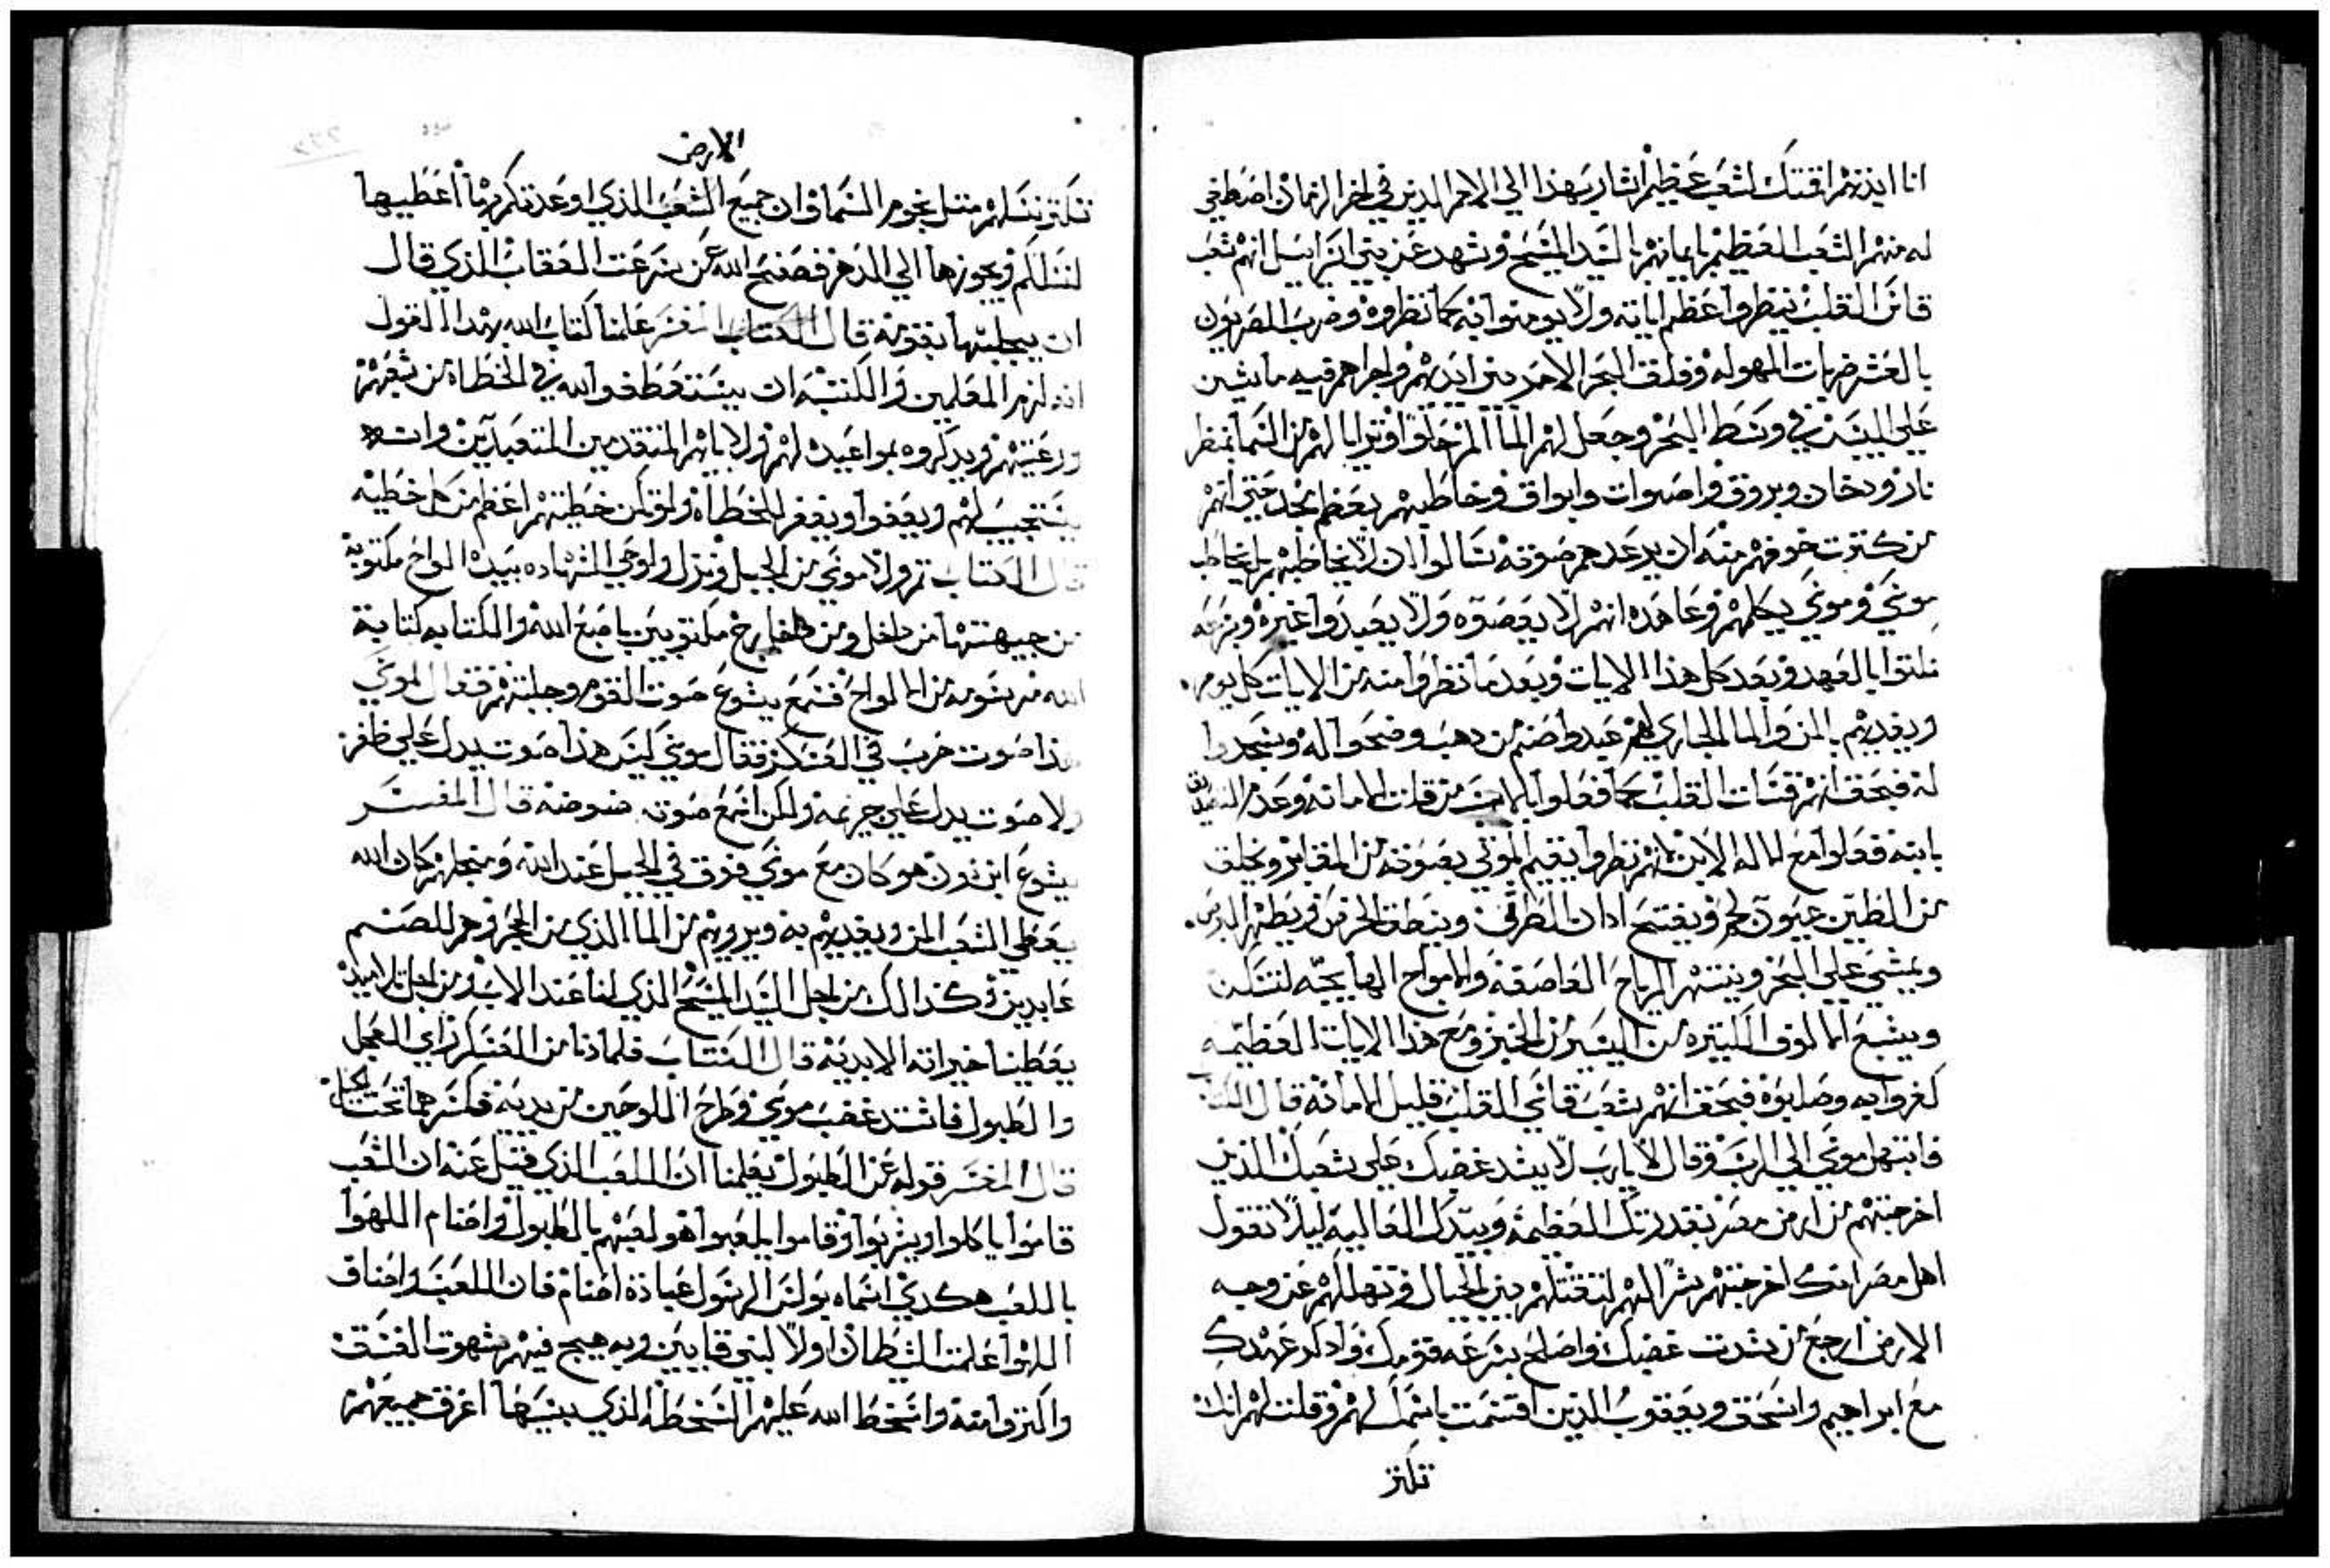 انا ابيدهم اقتنك لشعب عظيم اشار بهذا الي الامم الدين في اخر الزمان اصطفي
له منهم الشعب العظيم بايمانهم بالسيد المسيح وشهد عن بني اسراييل انهم شعب
قاسي القلب نيظروا عظم اياته ولا يومنوا به كما نظروه وضرب المصريون
بالعشر ضربات المهوله وفلق البحر الاحمر بين ايديهم واجراهم فيه ماشين
علي اليبس في وسط البحر وجعل لهم الما المر حلوا وترايا لهم من السما بمنظر
نار ودخان وبروق واصوات وابواق وخاطبهم بعظم مجد حتي انهم
من كترت خوفهم منه ان يرعدهم صوته سالوا ان لا يخاطبهم بل يخاطب
موسي وموسي يكلمهم وعاهده انهم لا يعصوه ولا يعبدوا غيره وبسرعه
نكتوا بالعهد وبعد كل هذا الايات وبعد ما نظروا منه من الايات كل يوم
ويغديهم بالمن والما الجاري لهم عبدوا صنم من دهب وضحوا له وسجدوا
له فبحق انهم قسات القلب كما فعلوا بالابن من قلت الامانه وعدم التصديق
بابنه ففعلوا مع الاله الابن انهم نظروا يقيم الموتي بصوته من المقابر ويخلق
من الطين عيون لحم ويفتح ادان الطرش وينطق الخرس ويطهر البرص
ويمشي علي البحر وينتهر الرياح العاصفه والامواج الهايجه لتسكن
ويشبع الالوف الكتيره من اليسير من الخبز ومع هذا الايات العظيمه
كفروا به وصلبوه فبحق انهم شعب قاسي القلب قليل الامانه قال الكتاب
فابتهل موسي الي الرب وقال لا يارب لا يشد غضبك علي شعبك الذين
اخرجتهم من ارض مصر بقدرتك العظيمه وبيدك العاليه ليلا تقول
اهل مصر انك اخرجتهم بشر الهم لتقتلهم بين الجبال وتهلكهم عن وجه
الارض ارجع من شدت غضبك واصلح بسرعه قومك وادكر عهدك
مع ابراهيم واسحق ويعقوب الذين اقسمت باسمك لهم وقلت لهم انك
تكتر
الارض
تكتر نسلهم متل نجوم السما وان جميع الشعب الذي اوعدتكم بها اعطيها
لنسلكم ويحوزها الي الدهر فصفح الله عن سرعت العقاب الذي قال
ان يجلبها بقومه قال الكتاب المفسر علمنا كتاب الله بهذا القول
انه لزم المعلمين والكتبه ان يستعطفوا الله في الخطاه من شعبهم
ورعيتهم ويدكروه بمواعيده لهم ولابايهم المتقدمين المتعبدين وانه
يستجيب لهم ويعفوا ويغفر للخطاه ولو تكن خطيتهم اعظم من كل خطيه
قال الكتاب تم ولا موسي من الجبل ونزل ولوحي الشهاده بيده الواح مكتوبه
من جيهتها من داخل ومن خارج مكتوبين باصبع الله والكتابه كتابة
الله مرسومه من الالواح فسمع يشوع صوت القوم وجلبتهم فقال لموسي
هذا صوت حرب في العسكر فقال موسي ليس هذا صوت يدل علي ظفر
ولا صوت يدل علي جزيمه ولكن اسمع صوت ضوضه قال المفسر
يشوع ابن نون هو كان مع موسي فوق في الجبل عند الله ومنجلهم كان الله
يعطي الشعب المن ويغديهم به ويرويهم من الما الذي من الحجر وهم للصنم
عابدين وكذالك من اجل السيد المسيح الذي لنا عند الاب ومن اجل تلاميده
يعطينا خيراته الابديه قال الكتاب فلما دنا من العسكر راي العجل
والطبول فاشتد غضب موسي وطرح اللوحين من يديه فكسرهما تحت الجبل
قال المفسر قوله عن الطبول يعلمنا ان اللعب الذي قيل عنه ان الشعب
قاموا ياكلوا ويشربوا وقاموا يلعبوا هو لعبهم بالطبول واصنام اللهوا
باللعب هكدي اسماه بولس الرسول عبادة اصنام فان اللعب واصناف
اللهوا علمت الشيطان اولا لبني قايين وبه هيج فيهم شهوت الفسق
واكتر وامنه واسخط الله عليهم السخطه الذي بسببها اغرق جميعهم